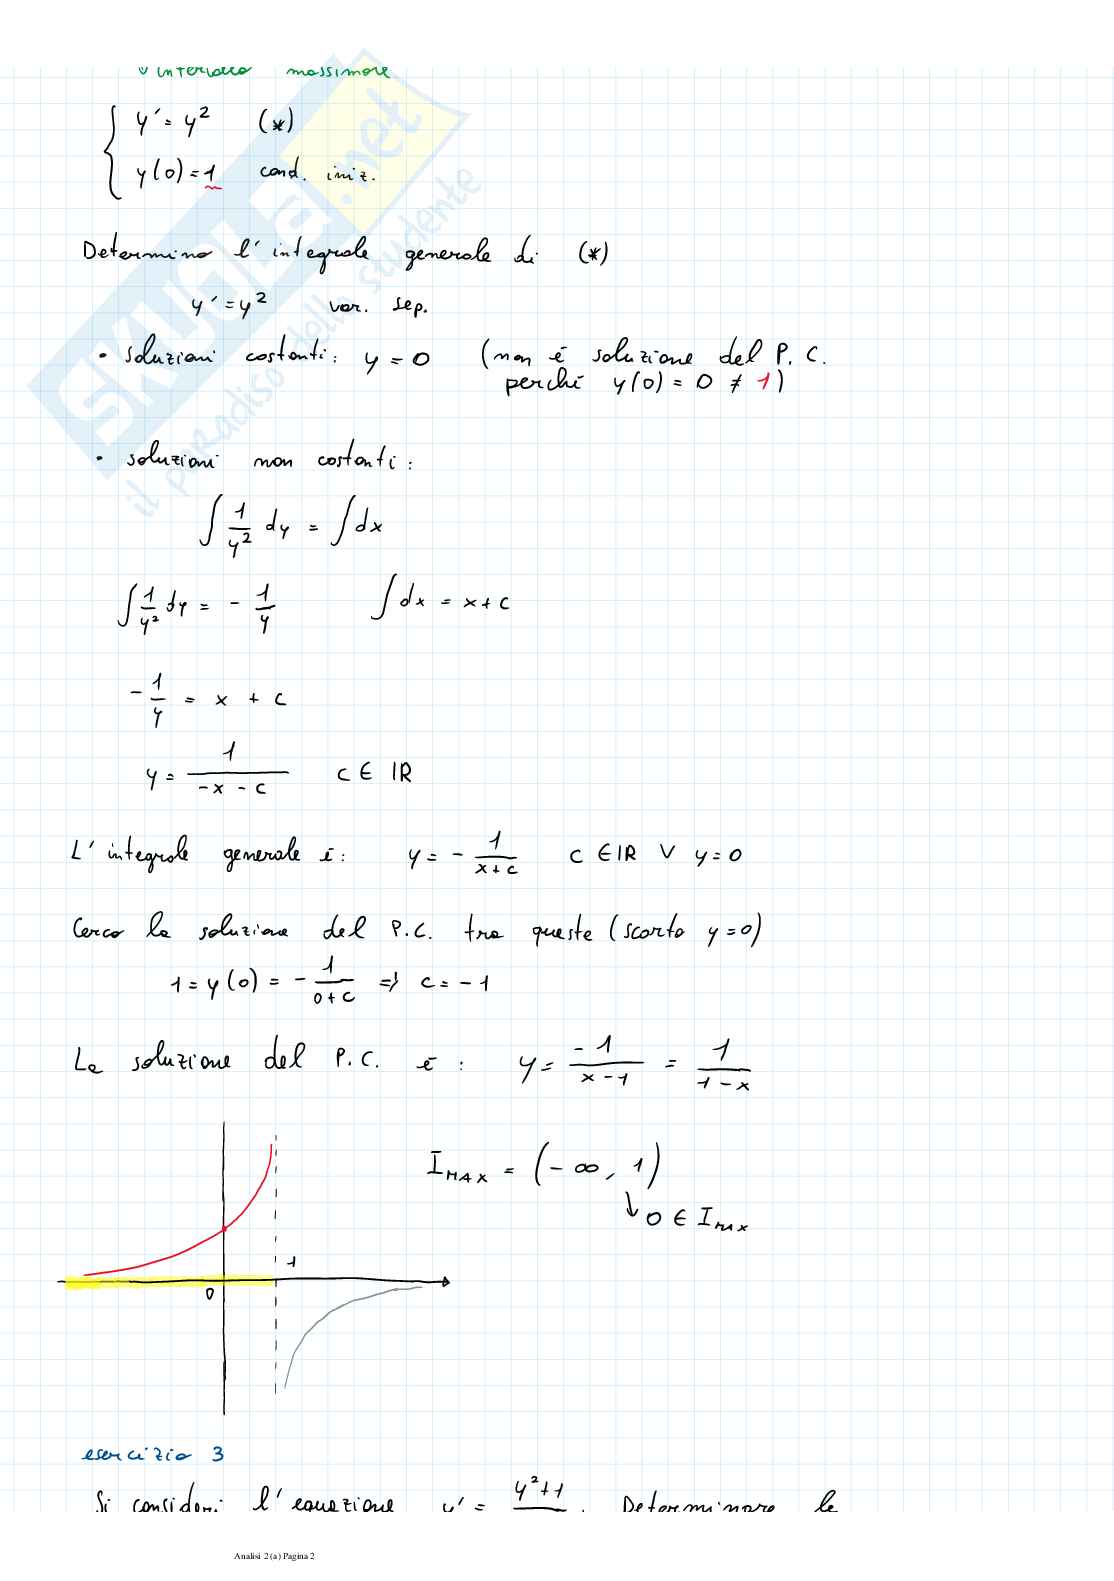 intervallo massimale
y' = y² (*)
y(0) = 1 cond. iniz.
Determino l'integrale generale di (*)
y' = y² var. sep.
• soluzioni costanti: y = 0 (non è soluzione del P.C.
perché y(0) = 0 ≠ 1)
• soluzioni non costanti:
∫ 1/y² dy = ∫ dx
∫ 1/y² dy = - 1/y ∫ dx = x + c
- 1/y = x + c
y = 1/(-x - c) c ∈ IR
L'integrale generale è: y = - 1/(x+c) c ∈ IR ∨ y = 0
Cerco la soluzione del P.C. tra queste (scarto y = 0)
1 = y(0) = - 1/(0+c) ⇒ c = -1
La soluzione del P.C. è: y = -1/(x-1) = 1/(1-x)
I MAX = (-∞, 1)
↓ 0 ∈ I MAX
1
0
esercizio 3
Si consideri l'equazione y' = y²+1 . Determinare le
Analisi 2 (a) Pagina 2
SKUOLA.net
il paradiso dello studente